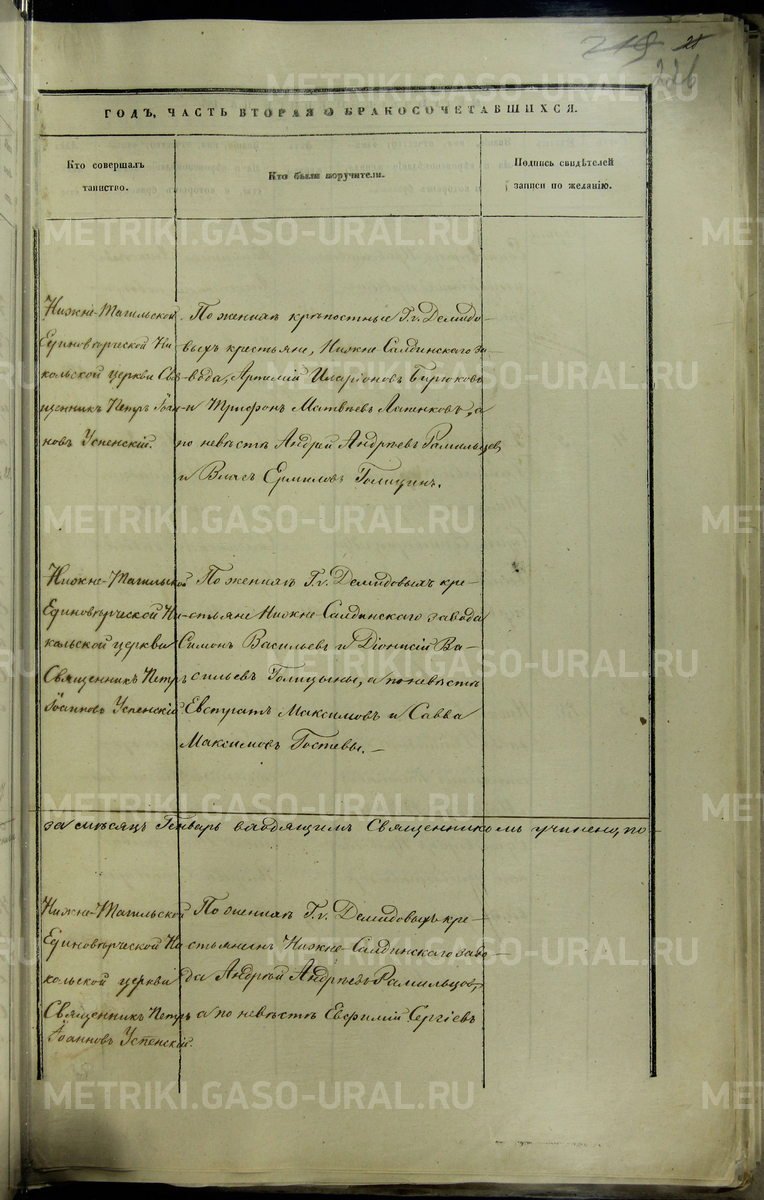 219 28
226
ГОДЪ, ЧАСТЬ ВТОРАЯ О БРАКОСОЧЕТАВШИХСЯ.
Кто совершалъ таинство.
Кто были поручители.
Подпись свидѣтелей записи по желанію.
Нижне-Тагильской
Единовѣрческой Ни-
кольской церкви Свя-
щенникъ Петръ Іоан-
новъ Успенскій.
По женихѣ крѣпостные Г.г. Демидо-
выхъ крестьяне, Нижне Салдинскаго за-
вода, Артемій Иларіоновъ Бирюковъ
и Трифонъ Матвѣевъ, а
по невѣстѣ Андрей Андрѣевъ Рамильцев,
и Власъ Ермиловъ Голицинъ.
Нижне-Тагильской
Единовѣрческой Ни-
кольской церкви
Священникъ Петръ
Іоанновъ Успенскій
По женихѣ Г.г. Демидовыхъ кре-
стьяне Нижне-Салдинскаго завода
Симонъ Васильевъ и Діонисій Ва-
сильевъ Голицыны, а по невѣстѣ
Евстратъ Максимовъ и Савва
Максимовъ Гостевы. –
за мѣсяцъ Генварь Священникомъ учинено, по
Нижне-Тагильской
Единовѣрческой Ни-
кольской церкви
Священникъ Петръ
Іоанновъ Успенскій.
По женихѣ Г.г. Демидовыхъ кре-
стьянинъ Нижне-Салдинскаго заво-
да Андрей Андрѣевъ Рамильцов,
а по невѣстѣ Евфимій Сергіевъ
METRIKI.GASO-URAL.RU